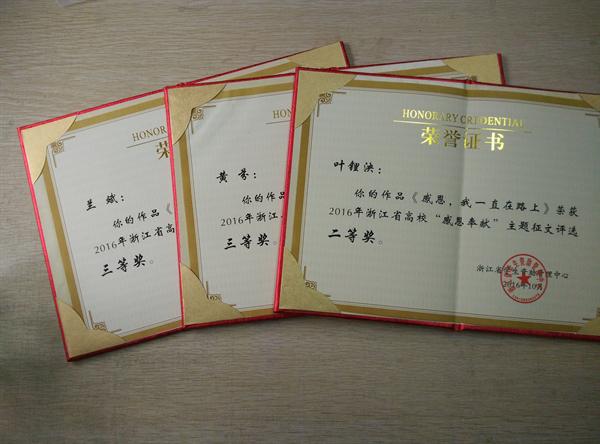 HONOR
荣
兰斌：
你的作品《
2016年浙江省高
三等奖。
HONORA
黄芬：
你的作品《
2016年浙江
三等奖。
HONORARY CREDENTIAL
荣誉证书
叶锂泱：
你的作品《感恩，我一直在路上》荣获
2016年浙江省高校“感恩奉献”主题征文评选
二等奖。
浙江省学生资助管理中心
2016年10月